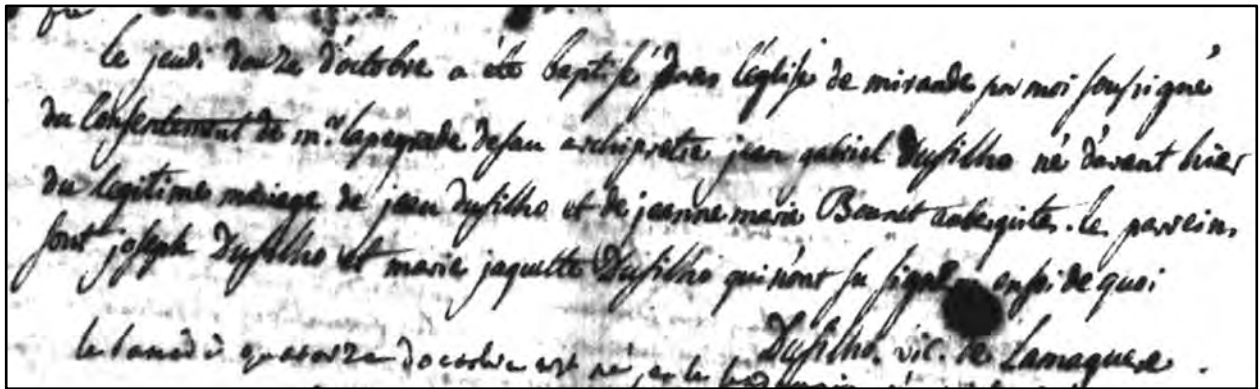 le jeudi douze d'octobre a été baptisé dans l'église de mirande par moi soussigné
du consentement de mr. lapegrade desan archipretre jean gabriel Dufilho né d'avant hier
du legitime mariage de jean dufilho et de jeanne marie Bonnet aubergistes. le parrein
sont joseph Dufilho et marie jaquette Dufilho qui n'ont su signer en foi de quoi
Dufilho. vic. de Lamaguere.
le samedi quatorze d'octobre est né